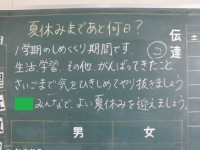 夏休みまであと何日?
1学期のしめくくり期間です。
生活、学習、その他、がんばってきたこと
さいごまで気をひきしめてやり抜きましょう
みんなで、よい夏休みを迎えましょう。
伝達
男 女